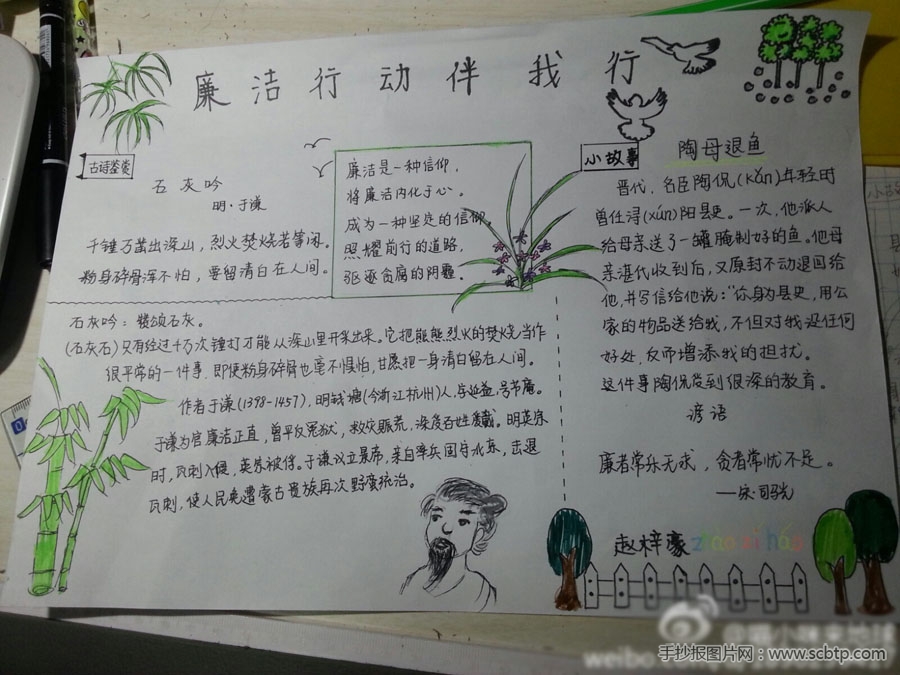 廉洁行动伴我行
古诗鉴赏
石灰吟
明·于谦
千锤万凿出深山，烈火焚烧若等闲。
粉身碎骨浑不怕，要留清白在人间。
廉洁是一种信仰，
将廉洁内化于心。
成为一种坚定的信仰。
照耀前行的道路，
驱逐贪腐的阴霾。
石灰吟：赞颂石灰。
(石灰石)只有经过千万次锤打才能从深山里开采出来。它把熊熊烈火的焚烧当作
很平常的一件事，即使粉身碎骨也毫不惧怕，甘愿把一身清白留在人间。
作者于谦(1398-1457)，明钱塘(今浙江杭州)人，字延益，号节庵。
于谦为官廉洁正直，曾平反冤狱，救灾赈荒，深受百姓爱戴。明英宗
时，瓦剌入侵，英宗被俘。于谦议立景帝，亲自率兵固守北京，击退
瓦剌，使人民免遭蒙古贵族再次野蛮统治。
小故事
陶母退鱼
晋代，名臣陶侃(kǎn)年轻时
曾任浔(xún)阳县吏。一次，他派人
给母亲送了一罐腌制好的鱼。他母
亲湛氏收到后，又原封不动退回给
他，并写信给他说："你身为县吏，用公
家的物品送给我，不但对我没任何
好处，反而增添我的担扰。
这件事陶侃受到很深的教育。
谚语
廉者常乐无求，贪者常忧不足。
——宋·司马光
赵梓豪 zhào zǐ háo
weibo
手抄报图片网：www.scbtp.com